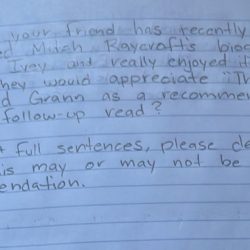 your friend has recently
ed Mitch Raycroft's biog
Ivey and really enjoyed it
they would appreciate "Th
d Grann as a recomme
follow-up read?
+ full sentences, please de
is may or may not be
endation.